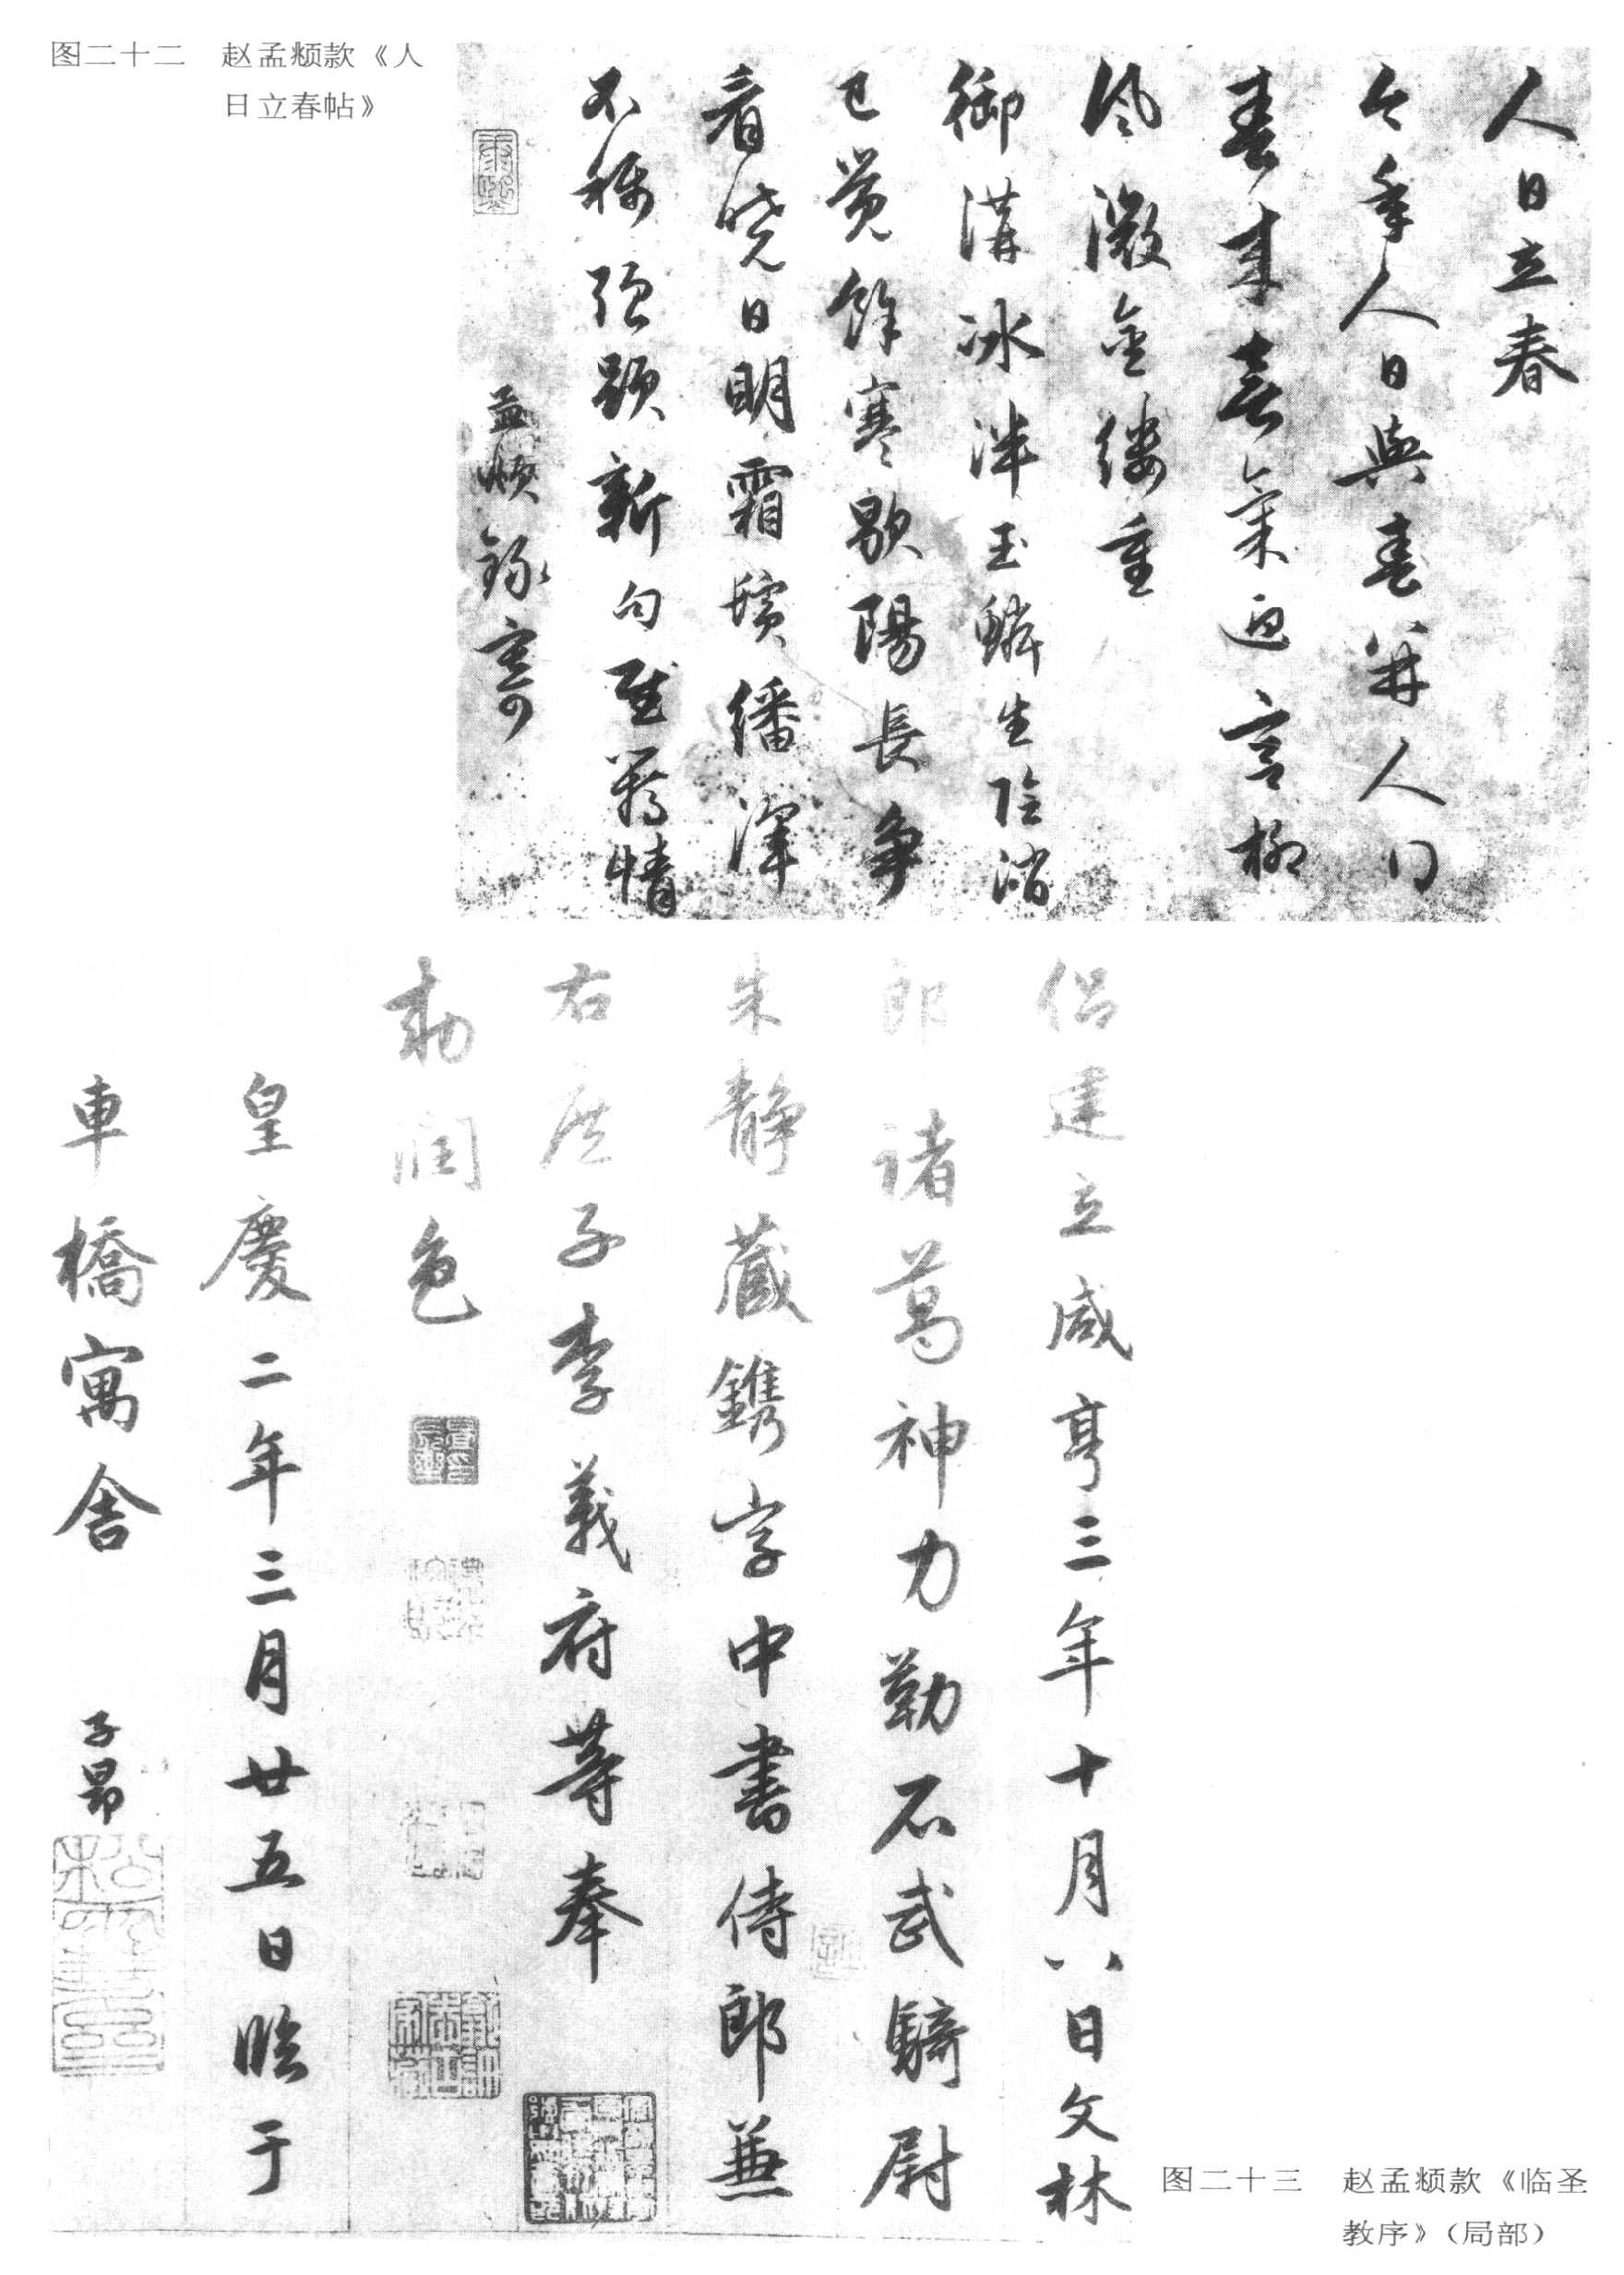 图二十二 赵孟頫款《人
日立春帖》
人日立春
今年人日與春并人門
春來喜氣迎宫柳
風激金縷重
御溝冰泮玉鱗生陰消
已覺餘寒歇陽長争
看晓日明霜鬓繙渾
不称强题新句
情
孟頫録寄
侣建立咸亨三年十月八日文林
郎諸葛神力勒石武騎尉
朱静藏鐫字中書侍郎兼
右庶子李義府等奉
勅润色
皇慶二年三月廿五日臨于
車橋寓舍 子昂
松雪齋
图二十三 赵孟頫款《临圣
教序》（局部）